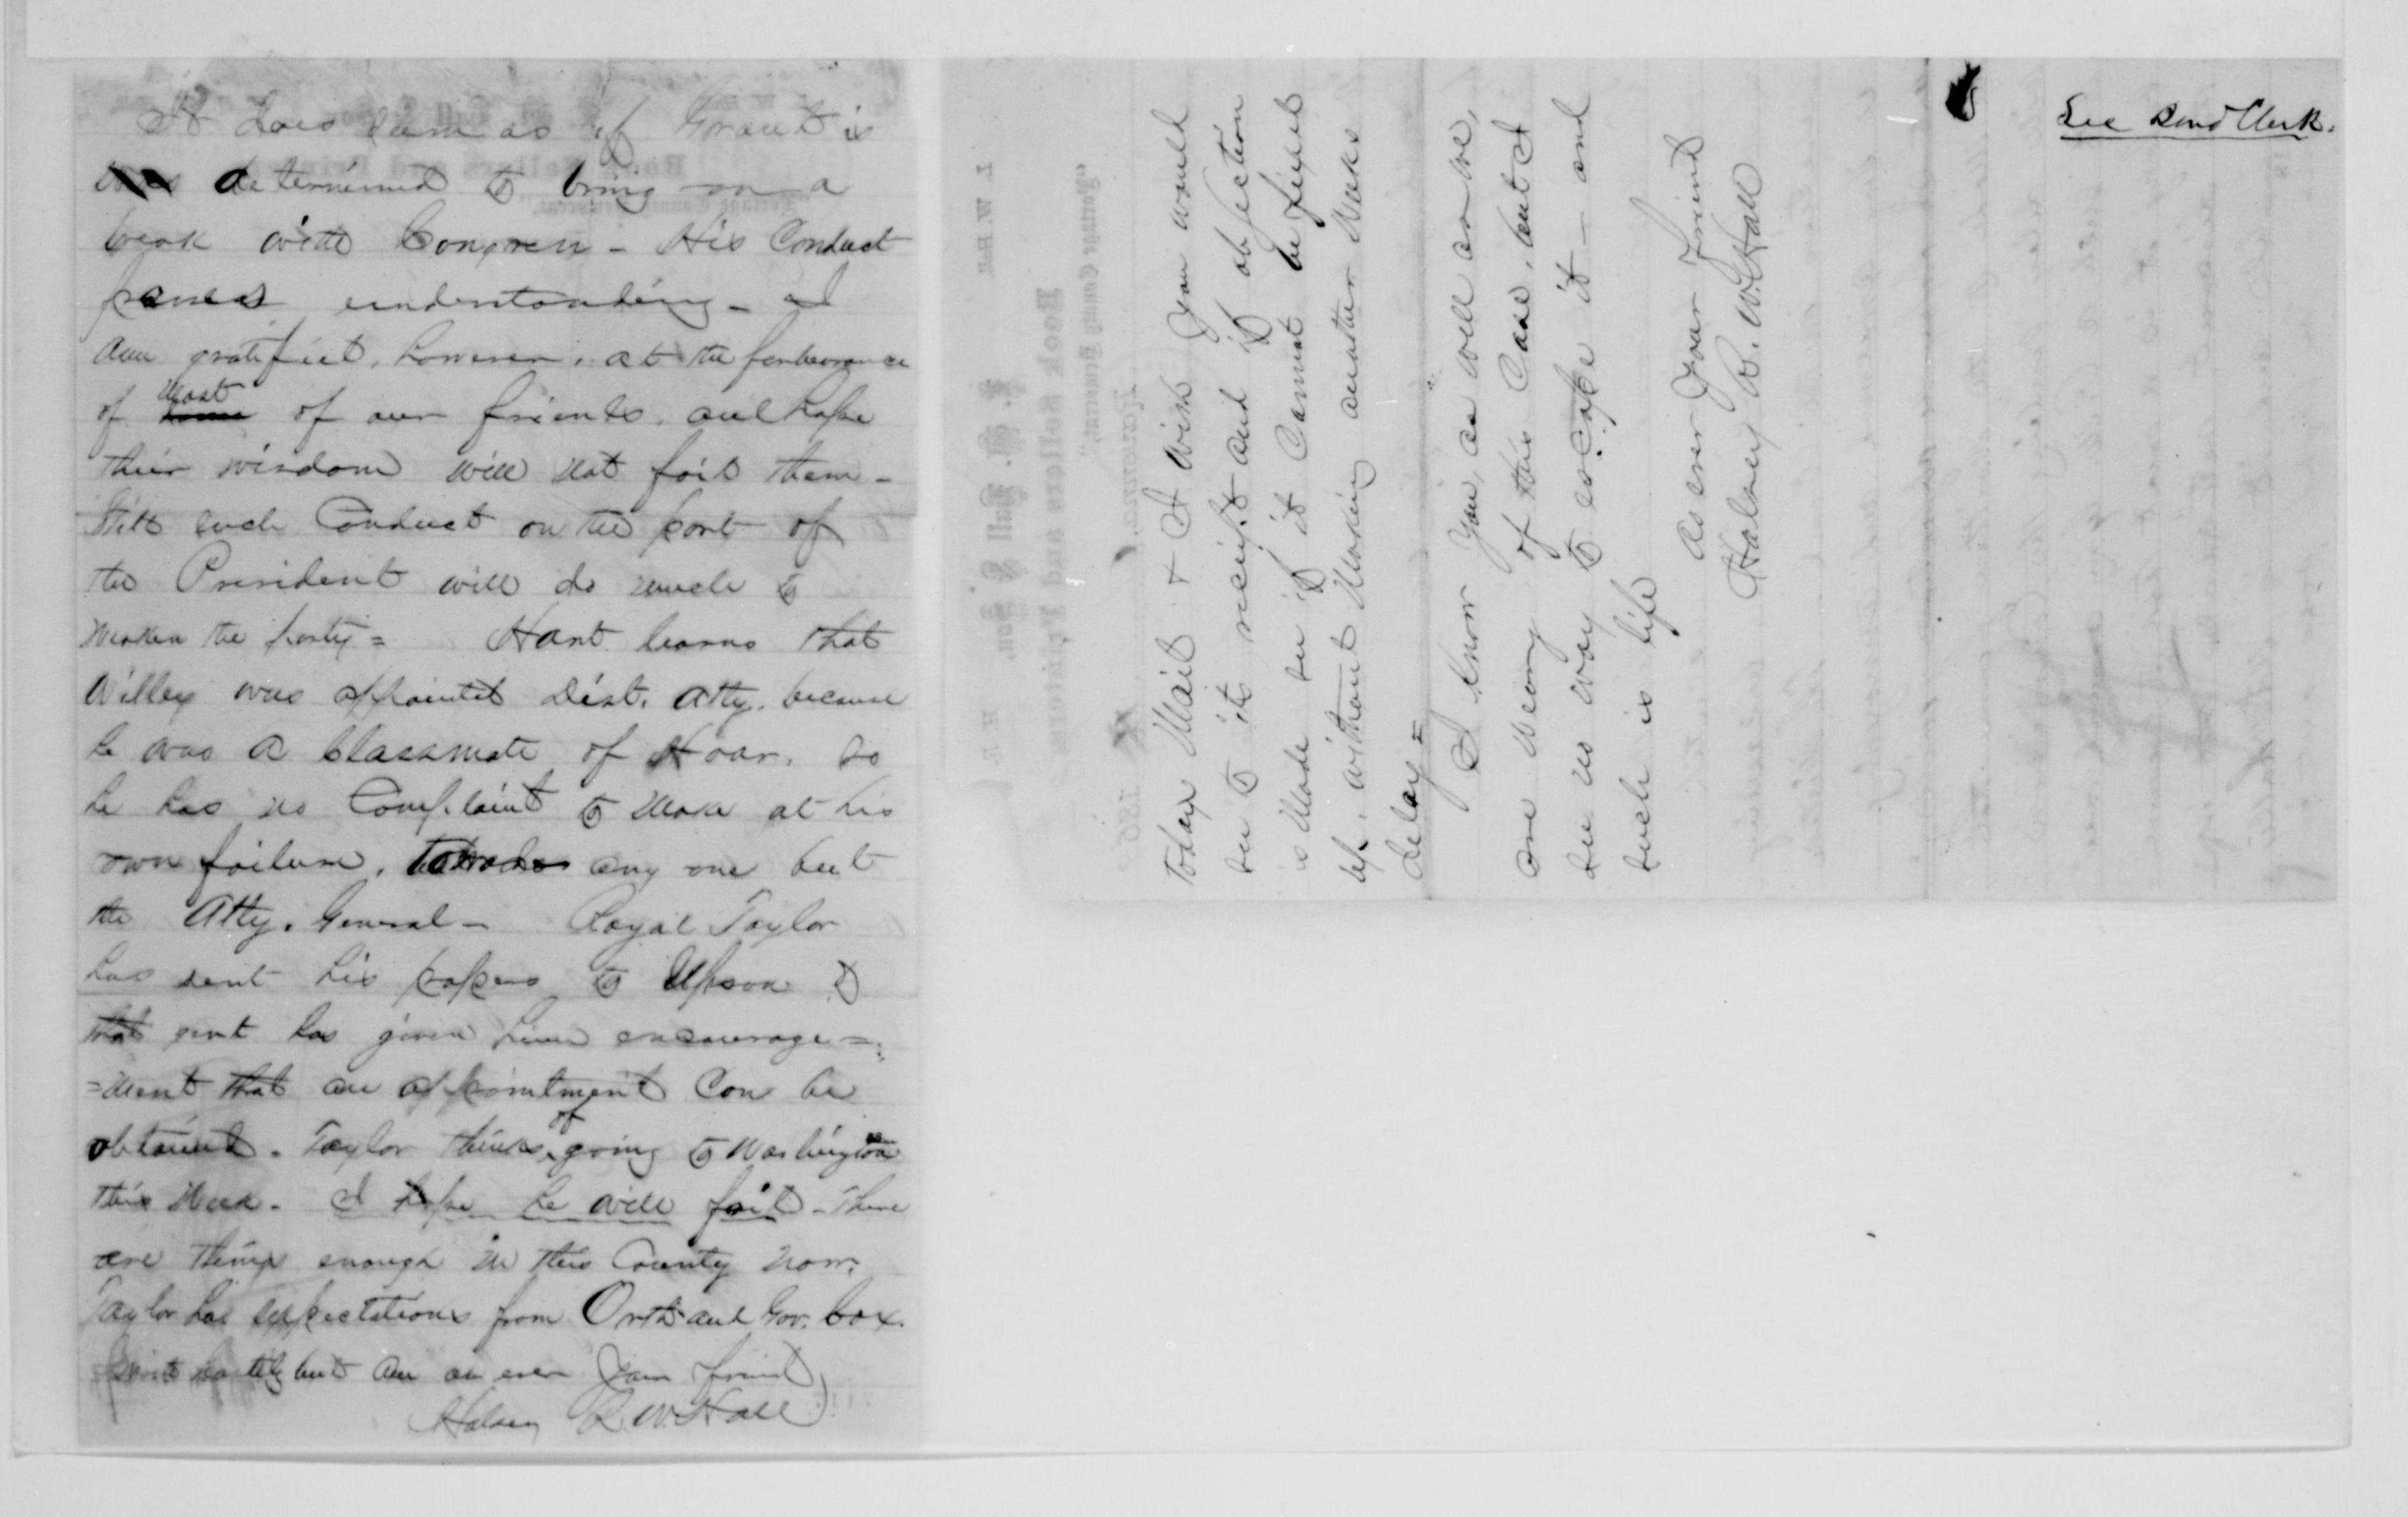 It does seem as if Grant is
was determined to bring on a
break with Congress - His Conduct
passes understanding - I
am gratified, however, at the forbearance
of some most of our friends, and hope
their wisdom will not fail them -
Still such Conduct on the part of
the President will do much to
weaken the party = Hart learns that
Willey was appointed Dist. Atty. because
he was a Classmate of Hoar. So
he has no Complaint to make at his
own failure, towards any one but
the Atty. General - Royal Taylor
has sent his papers to Upson &
that gent has given him encourage =
=ment that an appointment Can be
obtained. Taylor thinks of going to Washington
this week. I hope he will fail - There
are things enough in this County now.
Taylor has expectations from Orth and Gov. Cox.
hastily but am as ever Your friend,
Halsey R. W. Hall
Today Mail + I wish you would
see to its receipt and if objection
is made see if it Cannot be fixed
up, without making another weeks
delay =
I know you, as well as we,
are weary of this Case, but I
see no way to escape it - and
such is life
As ever Your Friend
Halsey R. W. Hall
See Bond Clerk.
Book Sellers and Printers,
"Portage County Democrat,"
L. W. Hall
Hall & Son,
H. R.
Ravenna,
186